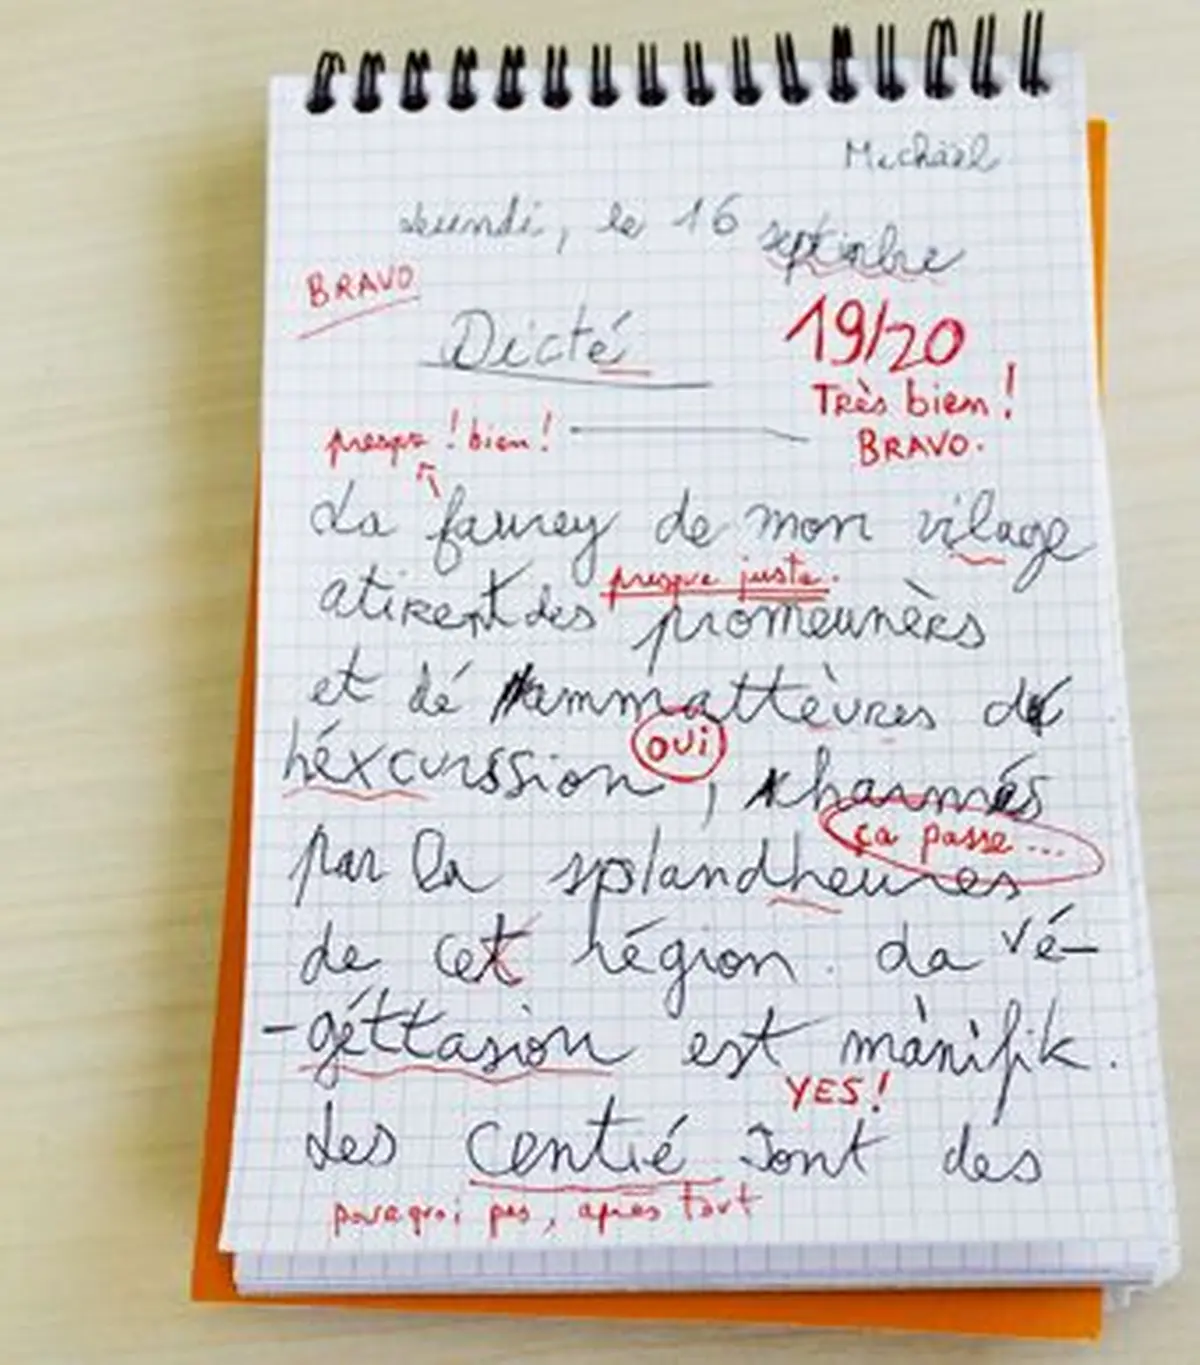 Michaël
Leundi, le 16 septinbre
BRAVO
Dicté
19/20
Très bien !
BRAVO.
presque ! bien !
La faurey de mon vilage
presque juste.
atirent des promeunèrs
et dé ammattèvres de
héxcurssion, kharmés
OUI
ça passe ...
par la splandheures
de cet région. La vé-
-géttasion est mànifik.
YES !
Les centié sont des
pourquoi pas, après tout